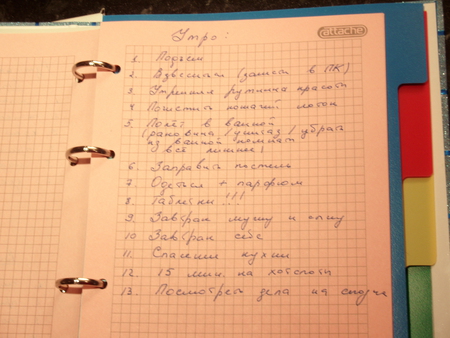 attache
Утро:
1. Подъём
2. Взвеситься (запись в ПК)
3. Утренняя рутинка красоты
4. Почистить кошачий лоток
5. Полёт в ванной
(раковина / унитаз / убрать
из ванной комнаты
всё лишнее)
6. Заправить постель
7. Одеться + парфюм
8. Таблетки!!!
9. Завтрак мужу и сыну
10. Завтрак себе
11. Спасение кухни
12. 15 мин. на хотспоты
13. Посмотреть дела на